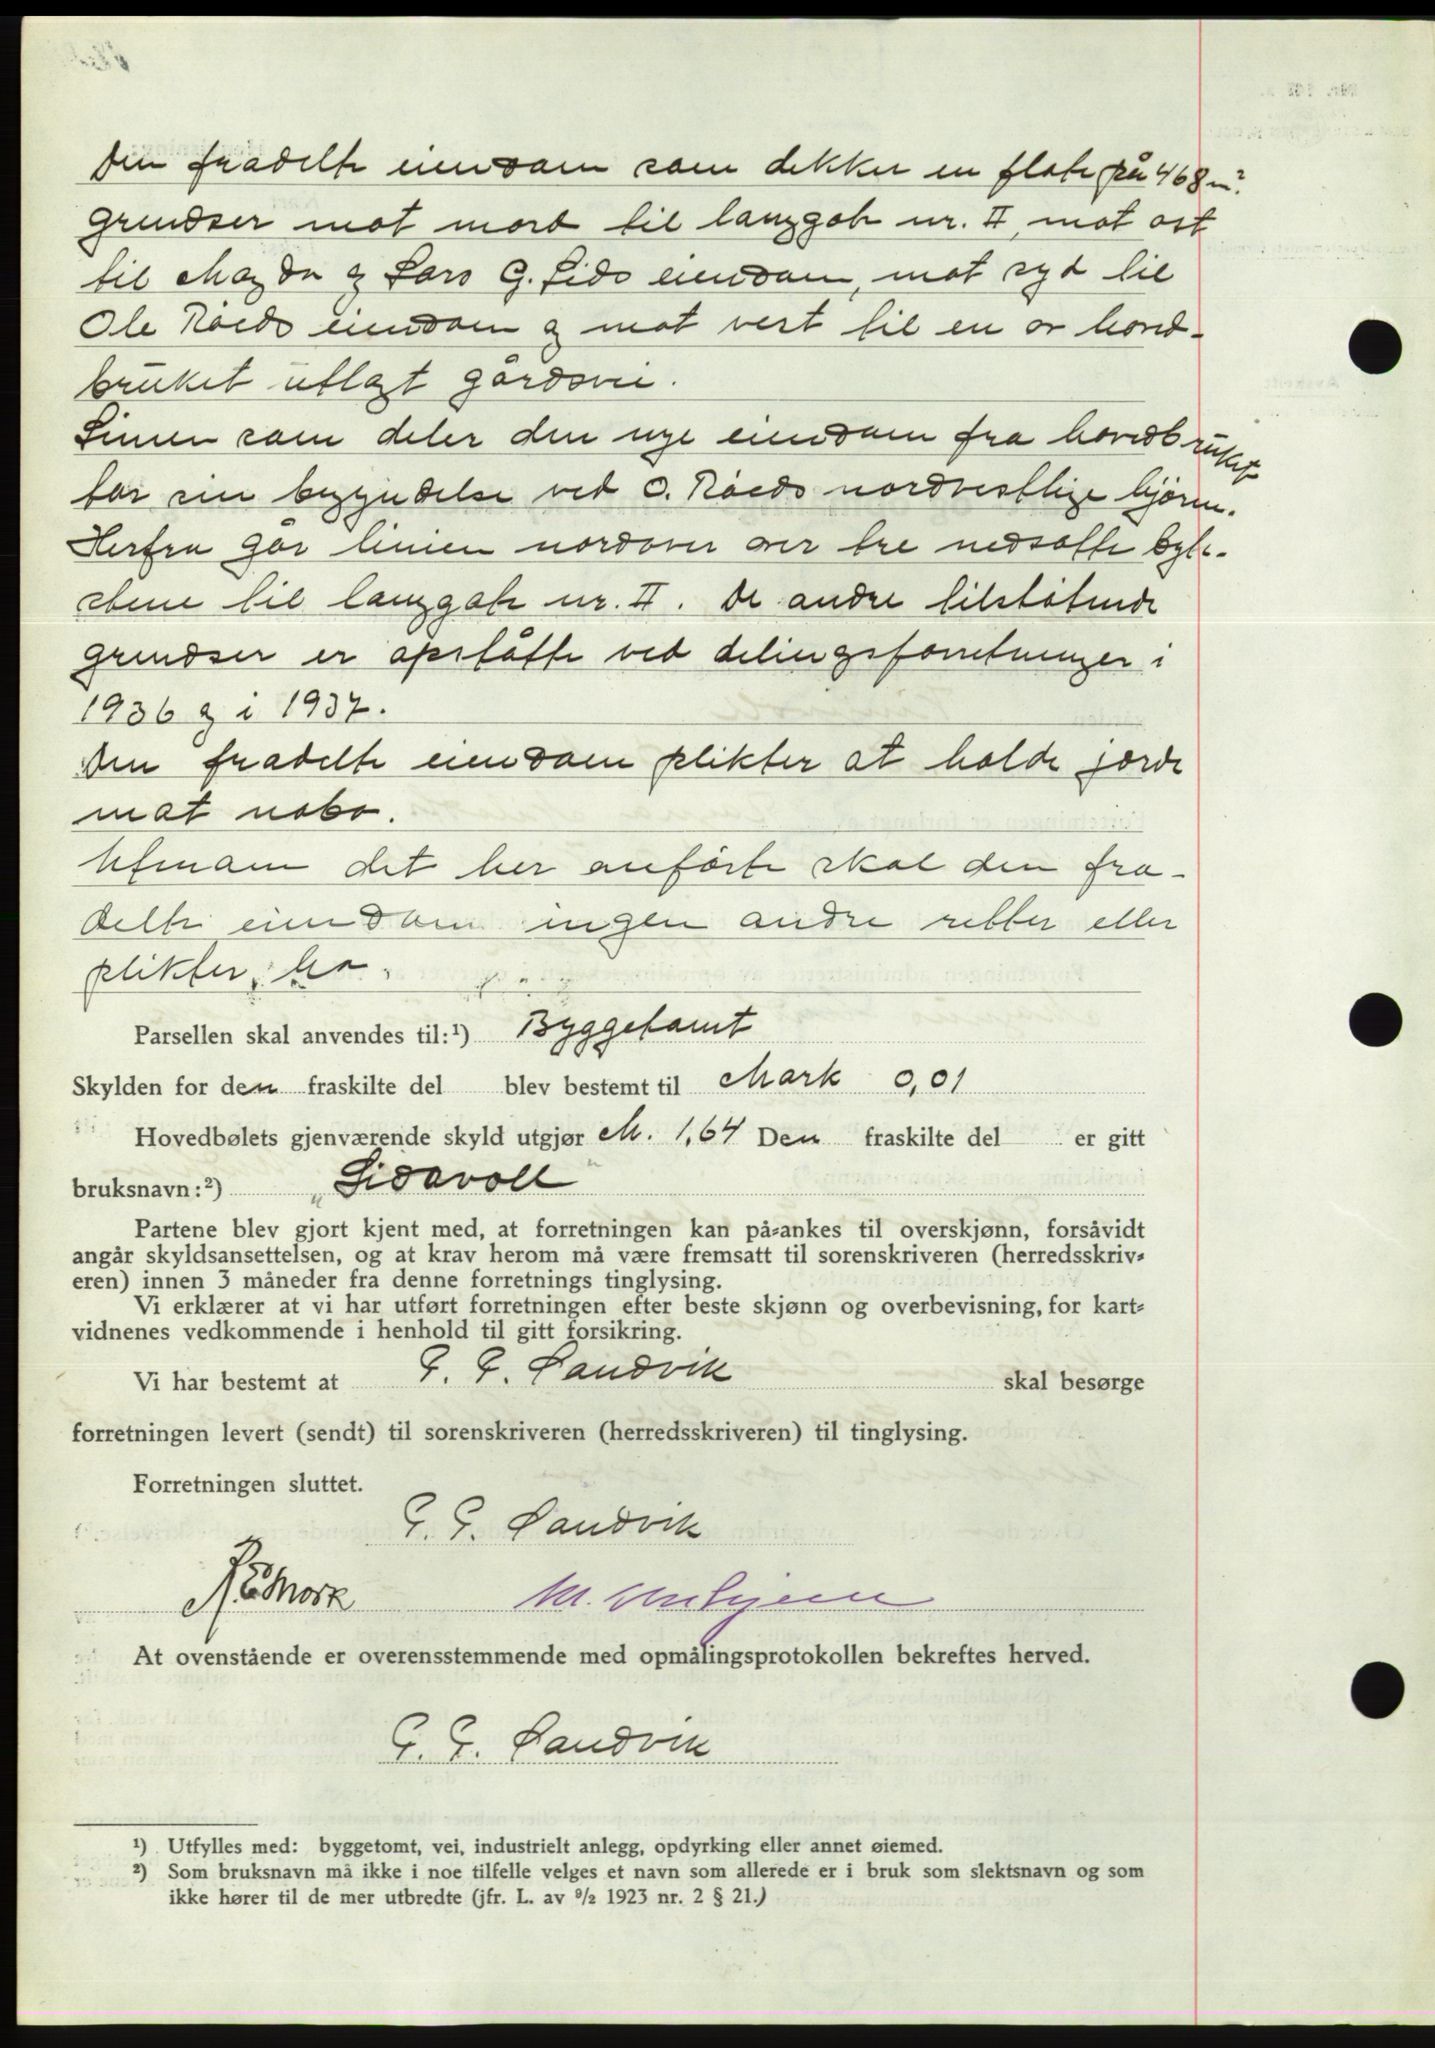 Den fradelte eiendom som dekker en flate på 468 m².
grendser mot nord til langgate nr. II, mot øst
til Magda og Lars G. Lids eiendom, mot syd til
Ole Råeds eiendom og mot vest til en av hoved-
bruket utlagt gårdsvei.
Linien som deler den nye eiendom fra hovedbruket
tar sin begyndelse ved O. Råeds nordvestlige hjörne.
Herfra går linien nordover over tre nedsatte byte-
stene til langgate nr. II. De andre tilstötende
grendser er opståtte ved delingsforretninger i
1936 og i 1937.
Den fradelte eiendom plikter at holde jærde
mot nabo.
Utenom det her anförte skal den fra-
delte eiendom ingen andre retter eller
plikter ha.
Parsellen skal anvendes til:¹) Byggetomt
Skylden for den fraskilte del blev bestemt til Mark 0,01
Hovedbølets gjenværende skyld utgjør M. 1,64 Den fraskilte del er gitt
bruksnavn:²) "Lidavoll"
Partene blev gjort kjent med, at forretningen kan på-ankes til overskjønn, forsåvidt
angår skyldsansettelsen, og at krav herom må være fremsatt til sorenskriveren (herredsskriv-
eren) innen 3 måneder fra denne forretnings tinglysing.
Vi erklærer at vi har utført forretningen efter beste skjønn og overbevisning, for kart-
vidnenes vedkommende i henhold til gitt forsikring.
Vi har bestemt at G. G. Sandvik skal besørge
forretningen levert (sendt) til sorenskriveren (herredsskriveren) til tinglysing.
Forretningen sluttet.
G. G. Sandvik
R. E. Mork
At ovenstående er overensstemmende med opmålingsprotokollen bekreftes herved.
G. G. Sandvik
¹) Utfylles med: byggetomt, vei, industrielt anlegg, opdyrking eller annet øiemed.
²) Som bruksnavn må ikke i noe tilfelle velges et navn som allerede er i bruk som slektsnavn og som
ikke hører til de mer utbredte (jfr. L. av ⁹/₂ 1923 nr. 2 § 21.)